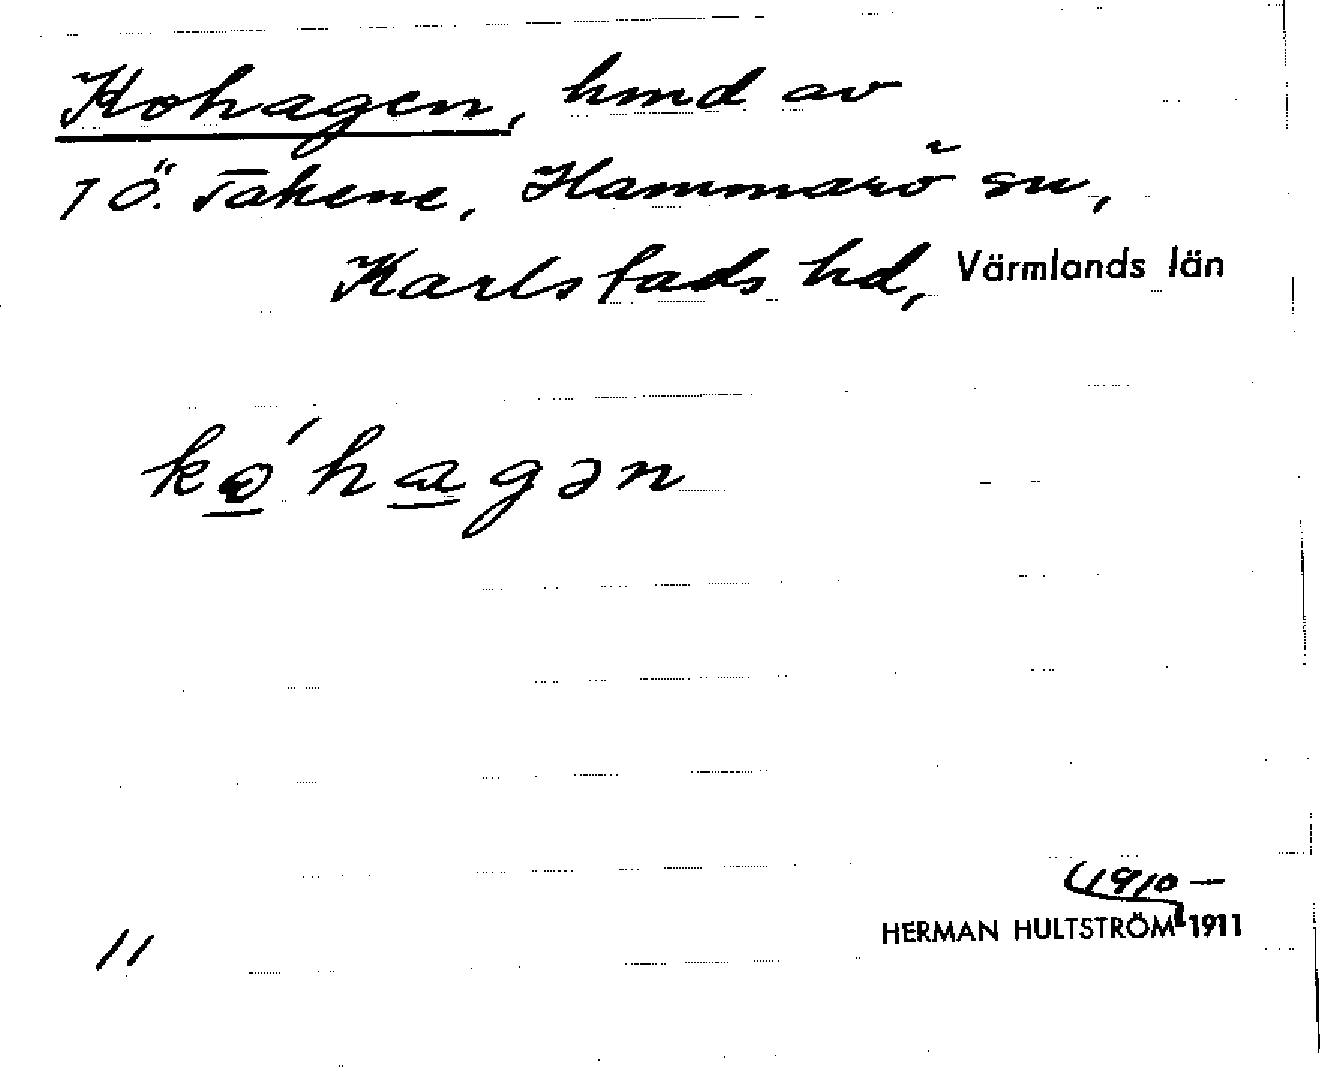 Kohagen, hmd av
7 Ö. Takene, Hammarö sn,
Karlstads hd, Värmlands län
ko̲´ha̲gən
1910 –
HERMAN HULTSTRÖM 1911
11